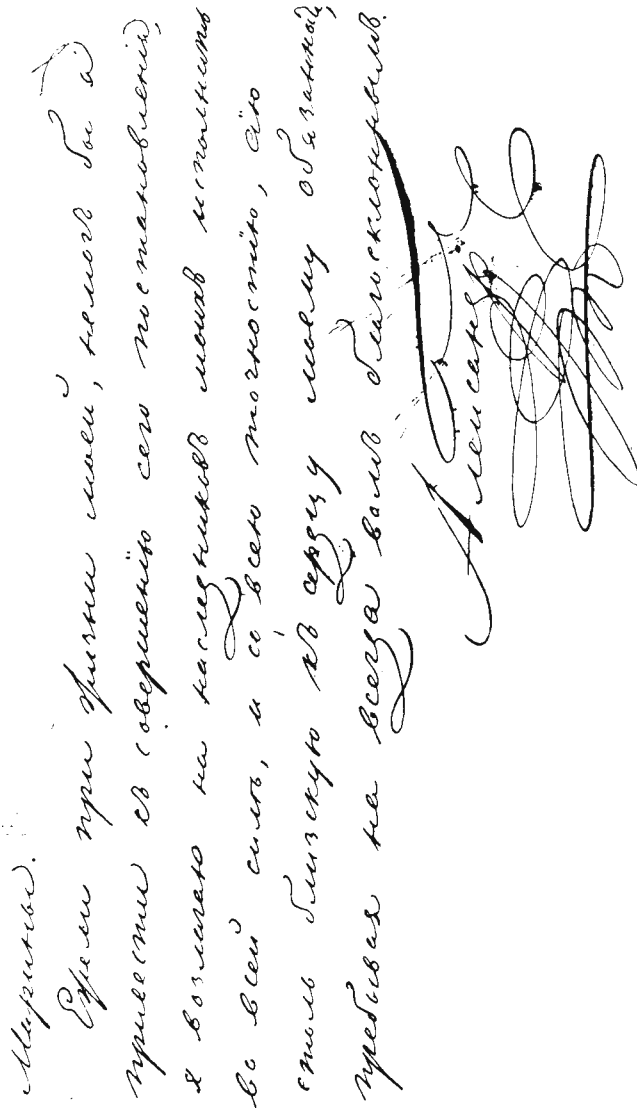 Марины.
Ежели при жизни моей, немогъ бы я
привести къ совершенію сего постановленія,
я возлагаю на наслѣдниковъ моихъ исполнить
во всей силѣ, и со всею точностію, сію
столь близкую къ сердцу моему обязанность,
пребывая на всегда вамъ благосклоннымъ.
Александръ